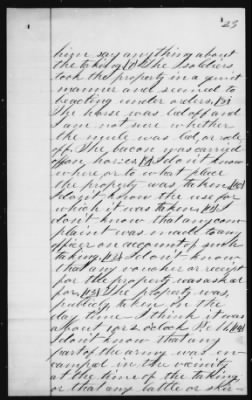 23
him say anything about
the taking. The soldiers
took the property in a quiet
manner and seemed to
be acting under orders.
The horse was led off and
I am not sure whether
the mule was led, or rode
off. The bacon was carried
off on horses. I don't know
where or to what place
the property was taken.
I don't know the use for
which it was taken. I
don't know that any com-
plaint was made to any
officer on account of such
taking. I don't know
that any voucher or receipt
for the property was asked
for. The property was
publicly taken in the
day time. I think it was
about 1 or 2 o'clock P.M.
I don't know that any
part of the army was en-
camped in the vicinity
at the time of the taking
or that any battle or skir-